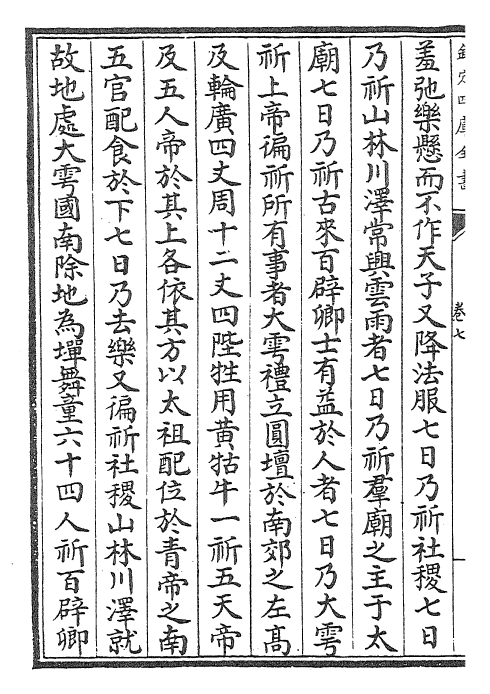 欽定四庫全書
卷七
羞弛樂懸而不作天子又降法服七日乃祈社稷七日
乃祈山林川澤常興雲雨者七日乃祈羣廟之主于太
廟七日乃祈古來百辟卿士有益於人者七日乃大雩
祈上帝徧祈所有事者大雩禮立圓壇於南郊之左髙
及輪廣四丈周十二丈四陛牲用黄牯牛一祈五天帝
及五人帝於其上各依其方以太祖配位於青帝之南
五官配食於下七日乃去樂又徧祈社稷山林川澤就
故地處大雩國南除地為墠舞童六十四人祈百辟卿